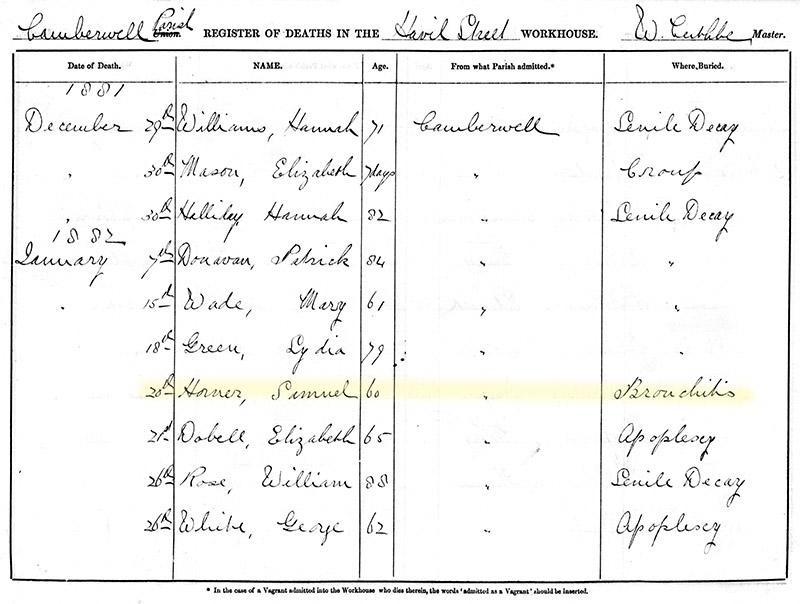 Camberwell Parish Union. REGISTER OF DEATHS IN THE Havil Street WORKHOUSE. W. Master.
Date of Death. NAME. Age. From what Parish admitted.* Where, Buried.
1881
December 29th Williams, Hannah 71 Camberwell Senile Decay
" 30th Mason, Elizabeth 7 days " Croup
" 30th Halliday, Hannah 82 " Senile Decay
1882
January 7th Donavan, Patrick 84 " "
" 15th Wade, Mary 61 " "
18th Green, Lydia 79 " "
20th Horner, Simuel 60 " Bronchitis
21st Dobell, Elizabeth 65 " Apoplexy
26th Rose, William 88 " Senile Decay
26th White, George 62 " Apoplexy
* In the case of a Vagrant admitted into the Workhouse who dies therein, the words 'admitted as a Vagrant' should be inserted.